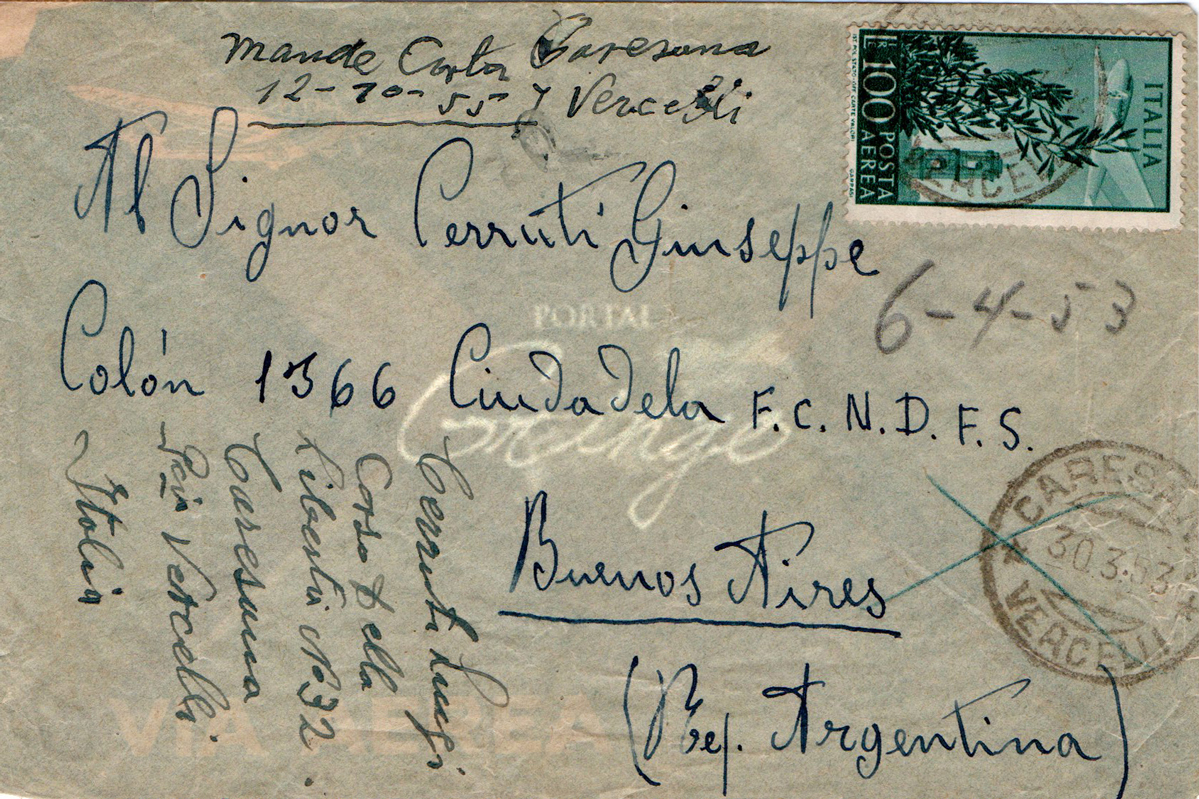 Mande Carta Caresana
12-10-55 y Vercelli
Al Signor Cerruti Giuseppe
Colón 1366 Ciudadela F.C.N.D.F.S.
Buenos Aires
(Rep. Argentina)
6-4-53
ITALIA
L.100 POSTA AEREA
CARESANA
30.3.53
VERCELLI
Cerruti Luigi
Corso Della
Libertà No 32.
Caresana
Vercelli
Italia
PORTAL
Gringo
VIA AEREA